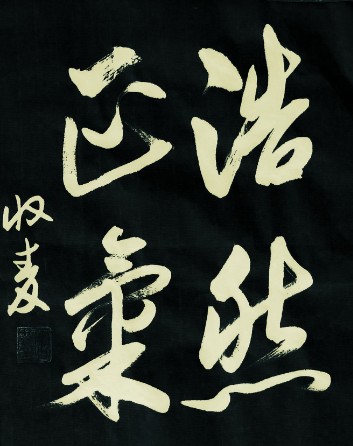 浩然
正氣
收麦